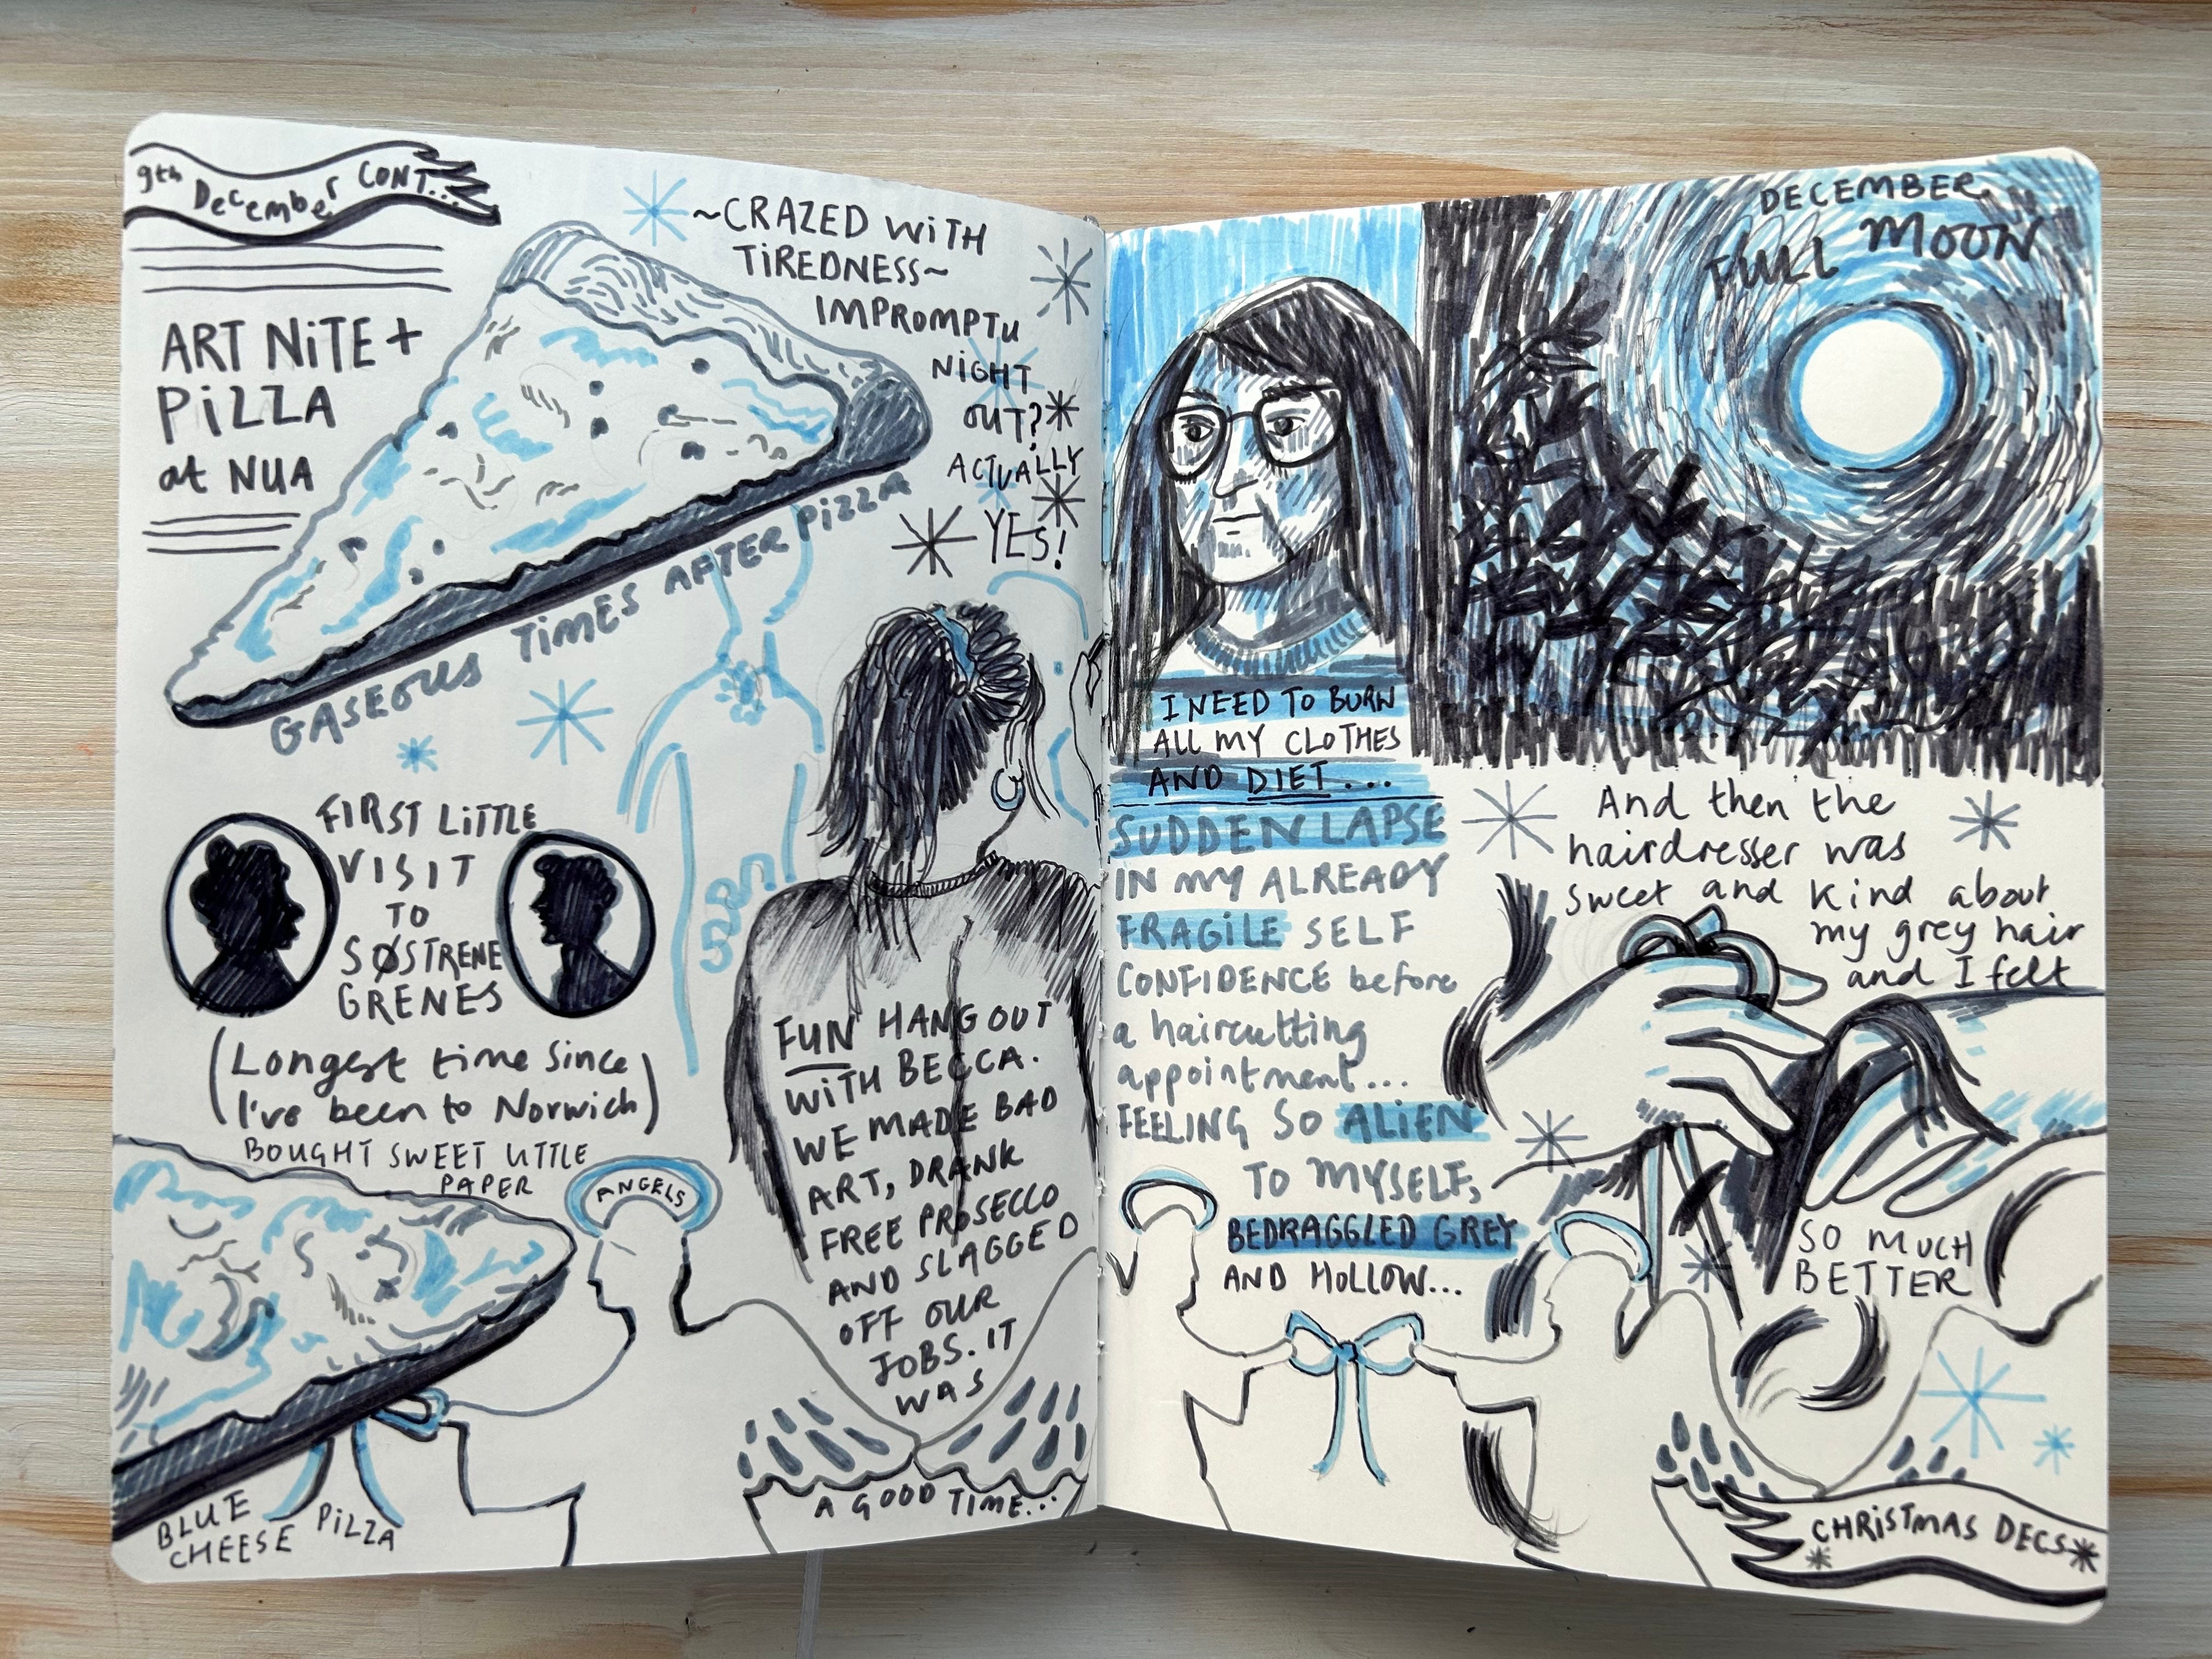 9th December CONT...
ART NiTE +
PiZZA
at NUA
~CRAZED WiTH
TiREDNESS~
IMPROMPTU
NIGHT
OUT?
ACTUALLY
YES!
GASEOUS TiMES AFTER PiZZA
FIRST LiTTLE
VISIT
TO
SØSTRENE
GRENES
(Longest time since
I've been to Norwich)
BOUGHT SWEET LITTLE
PAPER
ANGELS
BLUE
CHEESE PiZZA
FUN HANG OUT
WiTH BECCA.
WE MADE BAD
ART, DRANK
FREE PROSECCO
AND SLAGGED
OFF OUR
JOBS. IT
WAS
A GOOD TIME...
I NEED TO BURN
ALL MY CLOTHES
AND DIET...
SUDDEN LAPSE
IN MY ALREADY
FRAGiLE SELF
CONFIDENCE before
a haircutting
appointment...
FEELING SO ALiEN
TO MYSELF,
BEDRAGGLED GREY
AND HOLLOW...
DECEMBER
FULL MOON
And then the
hairdresser was
sweet and kind about
my grey hair
and I felt
SO MUCH
BETTER
CHRiSTMAS DECS